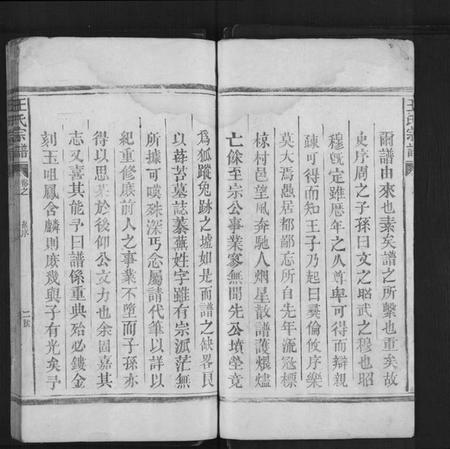 王氏宗譜
爾譜由來也素矣譜之所繫也重矣故
史序周之子孫曰文之昭武之穆也昭
穆既定雖歷年之久尊卑可得而辯親
疎可得而知王子乃起曰彝倫攸序樂
莫大焉愚居都鄙忘所自先年流寇標
椋村邑望風奔馳人烟星散譜護燬燼
亡餘至宗公事業寥無聞先公墳塋竟
為狐蹤兔跡之墟如是而譜之缺畧艮
以莓苔墓誌蓁蕪姓字雖有宗派茫無
所據可嘆殊深丐念屬請代筆以詳以
紀重修庶前人之事業不墮而子孫亦
得以思其於後仰公文力也余固嘉其
志又喜其能予曰譜係重典殆必鏤金
刻玉咀鳳含麟則庶幾與子有光矣予
王氏宗譜
卷之